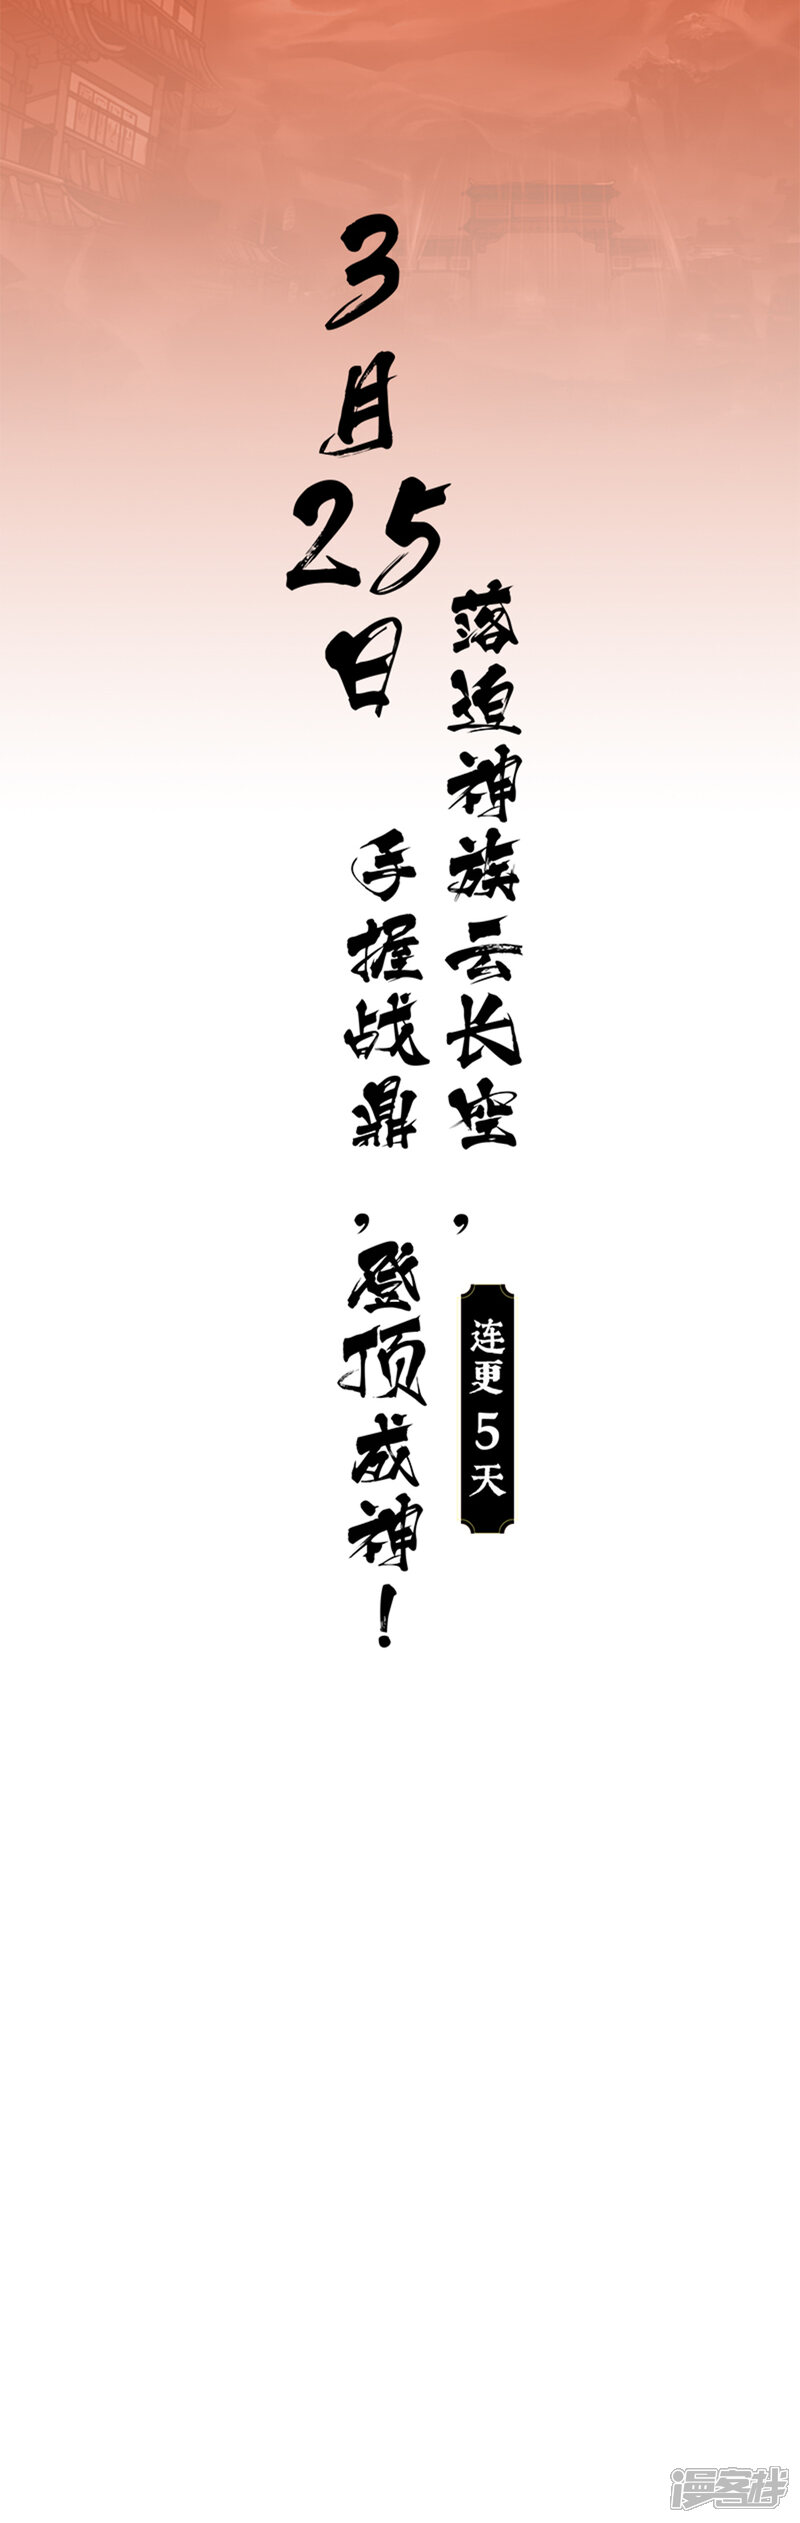 3月25日
落迫神族云长空，
手握战鼎，登顶成神！
连更5天
漫客栈